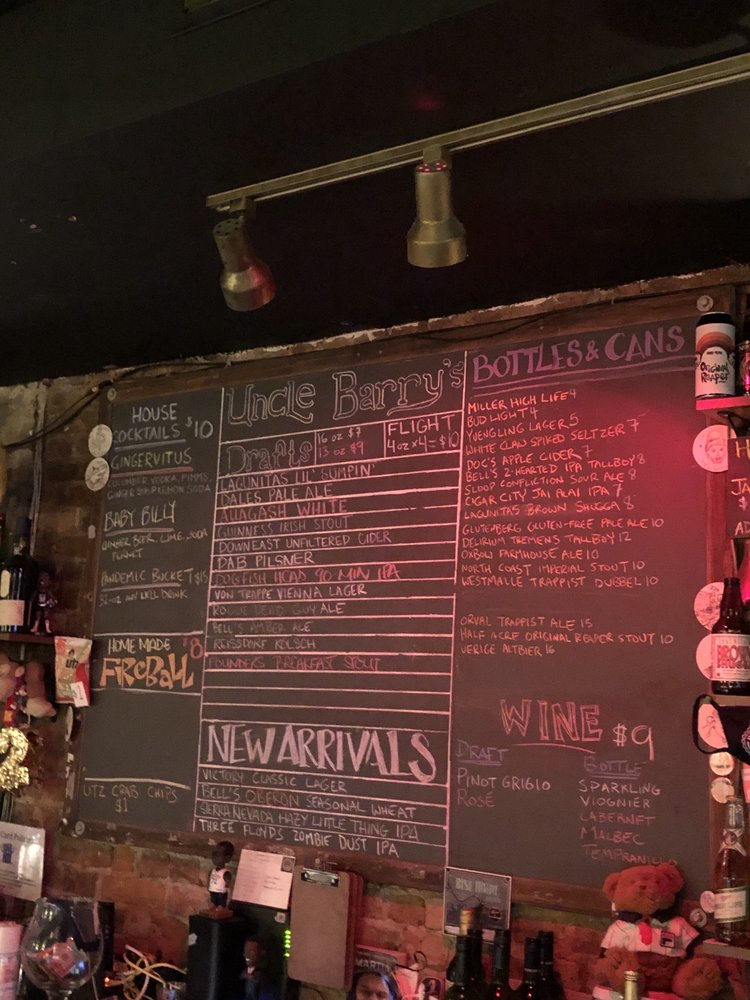 HOUSE
COCKTAILS $10
GINGERVITUS
CUCUMBER VODKA, PIMMS,
GINGER BEER, LEMON, SODA
BABY BILLY
GINGER BEER, LIME, SODA
PANDEMIC BUCKET $15
32-OZ ANY WELL DRINK
HOME MADE $8
FIREBALL
UTZ CRAB CHIPS
$1
UNCLE BARRY'S
Drafts
16 oz $7
13 oz $9
FLIGHT
4oz x 4 = $10
LAGUNITAS LIL' SUMPIN'
DALES PALE ALE
ALLAGASH WHITE
GUINNESS IRISH STOUT
DOWNEAST UNFILTERED CIDER
DAB PILSNER
DOGFISH HEAD 90 MIN IPA
VON TRAPPE VIENNA LAGER
ROGUE DEAD GUY ALE
BELL'S AMBER ALE
REISSDORF KOLSCH
FOUNDERS BREAKFAST STOUT
NEW ARRIVALS
VICTORY CLASSIC LAGER
BELL'S OBERON SEASONAL WHEAT
SIERRA NEVADA HAZY LITTLE THING IPA
THREE FLOYDS ZOMBIE DUST IPA
BOTTLES & CANS
MILLER HIGH LIFE 4
BUD LIGHT 4
YUENGLING LAGER 5
WHITE CLAW SPIKED SELTZER 7
DOC'S APPLE CIDER 7
BELL'S 2-HEARTED IPA TALLBOY 8
SLOOP CONFLICTION SOUR ALE 8
CIGAR CITY JAI ALAI IPA 7
LAGUNITAS BROWN SHUGGA 8
GLUTENBERG GLUTEN-FREE PALE ALE 10
DELIRIUM TREMENS TALLBOY 12
OXBOW FARMHOUSE ALE 10
NORTH COAST IMPERIAL STOUT 10
WESTMALLE TRAPPIST DUBBEL 10
ORVAL TRAPPIST ALE 15
HALF ACRE ORIGINAL REAPER STOUT 10
UERIGE ALTBIER 16
WINE $9
DRAFT
PINOT GRIGIO
ROSÉ
BOTTLE
SPARKLING
VIOGNIER
CABERNET
MALBEC
TEMPRANILLO
ORIGINAL
REAPER
UTZ